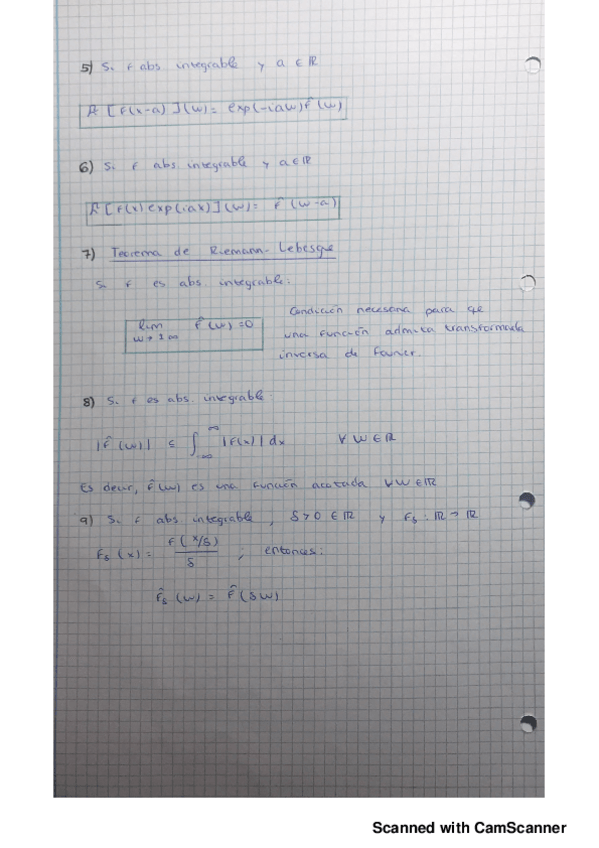 5) Si f abs integrable y a ∈ ℝ
F[f(x-a)](w) = exp(-iaw) f̂(w)
6) Si f abs. integrable y a ∈ ℝ
F[f(x) exp(iax)](w) = f̂(w-a)
7) Teorema de Riemann-Lebesgue
Si f es abs. integrable:
lim f̂(w) = 0
w→±∞
Condición necesaria para que
una función admita transformada
inversa de Fourier.
8) Si f es abs. integrable:
|f̂(w)| ≤ ∫_{-∞}^{∞} |f(x)| dx ∀ w ∈ ℝ
Es decir, f̂(w) es una función acotada ∀ w ∈ ℝ
9) Si f abs integrable, δ > 0 ∈ ℝ y f_δ : ℝ → ℝ
f_δ(x) = f(x/δ)/δ ; entonces:
f̂_δ(w) = f̂(δw)
Scanned with CamScanner